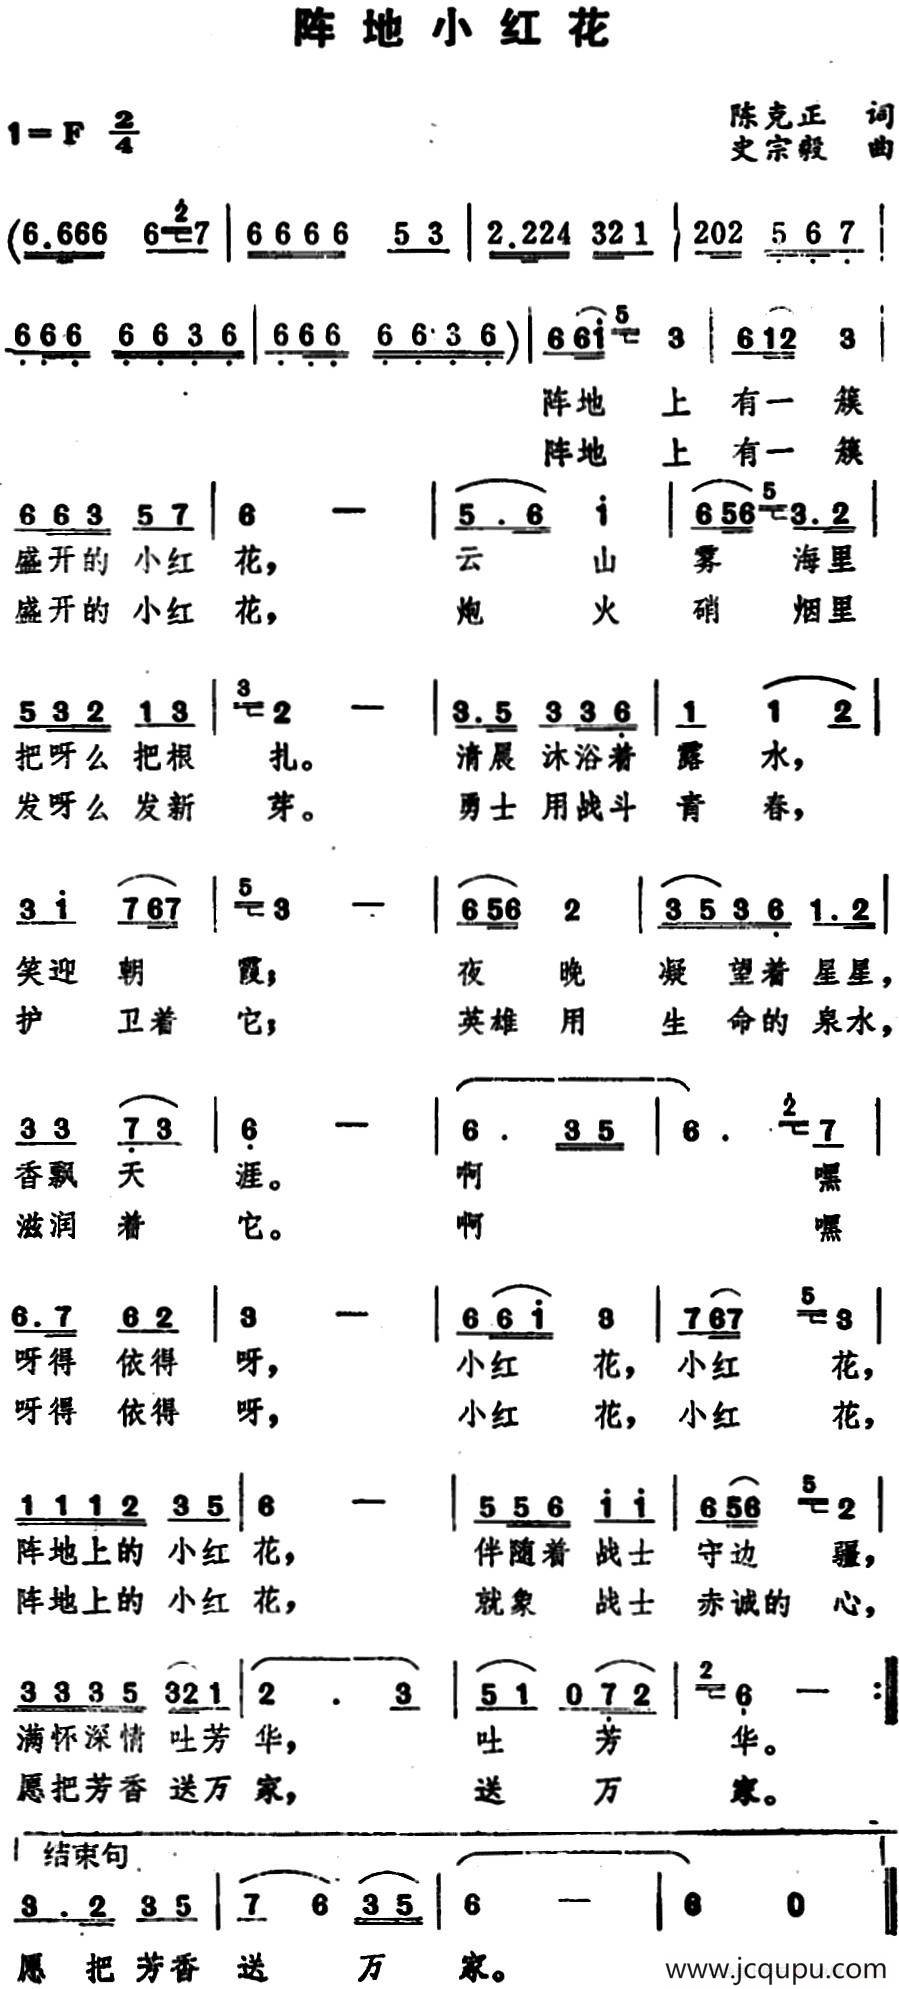 阵地小红花
1=F 2/4
陈克正 词
史宗毅 曲
(6.666 6 2 7 | 6666 53 | 2.224 321 | 202 567 |
666 6636 | 666 6636 ) | 66i 5 3 | 612 3 |
阵地 上 有一 簇
阵地 上 有一 簇
663 57 | 6 — | 5.6 i | 656 5 3.2 |
盛开的 小红 花， 云 山 雾 海里
盛开的 小红 花， 炮 火 硝 烟里
532 13 | 3 2 — | 3.5 336 | 1 1 2 |
把呀么 把根 扎。 清晨 沐浴着 露 水，
发呀么 发新 芽。 勇士 用战斗 青 春，
3i 767 | 5 3 — | 656 2 | 3536 1.2 |
笑迎 朝 霞； 夜 晚 凝 望着 星星，
护 卫着 它； 英雄 用 生 命的 泉水，
33 73 | 6 — | 6. 35 | 6. 2 7 |
香飘 天 涯。 啊 嘿
滋润 着 它。 啊 嘿
6.7 62 | 3 — | 66i 3 | 767 5 3 |
呀得 依得 呀， 小红 花， 小红 花，
呀得 依得 呀， 小红 花， 小红 花，
1112 35 | 6 — | 556 ii | 656 5 2 |
阵地上的 小红 花， 伴随着 战士 守边 疆，
阵地上的 小红 花， 就象 战士 赤诚的 心，
3335 321 | 2 . 3 | 51 072 | 2 6 — :|
满怀深情 吐芳 华， 吐 芳 华。
愿把芳香 送万 家， 送 万 家。
结束句
3.2 35 | 7 6 35 | 6 — | 6 0 ||
愿 把 芳香 送 万 家。
www.jcqupu.com